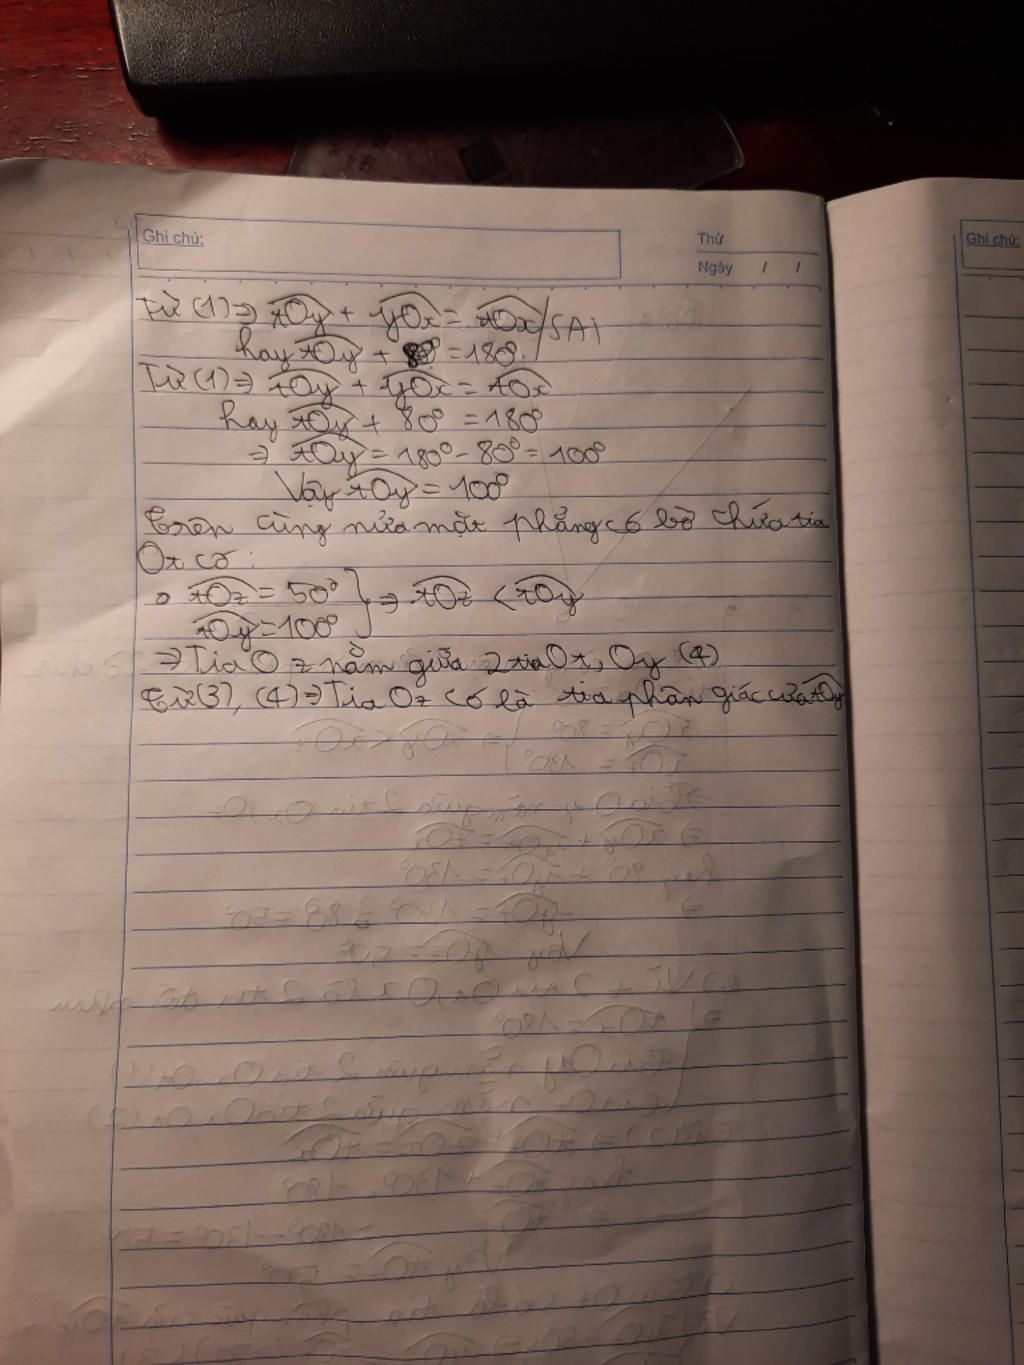 Ghi chú:
Thứ
Ngày / /
Ghi chú:
Từ (1) ⇒ tOy + yOx = tOx / SAi
hay tOy + 80° = 180°.
Từ (1) ⇒ tOy + yOx = tOx
hay tOy + 80° = 180°
⇒ tOy = 180° - 80° = 100°
Vậy tOy = 100°
Trên cùng nửa mặt phẳng có bờ chứa tia
Ot có:
tOz = 50° } ⇒ tOz < tOy
tOy = 100°
⇒ Tia Oz nằm giữa 2 tia Ot, Oy (4)
Từ (3), (4) ⇒ Tia Oz có là tia phân giác của tOy